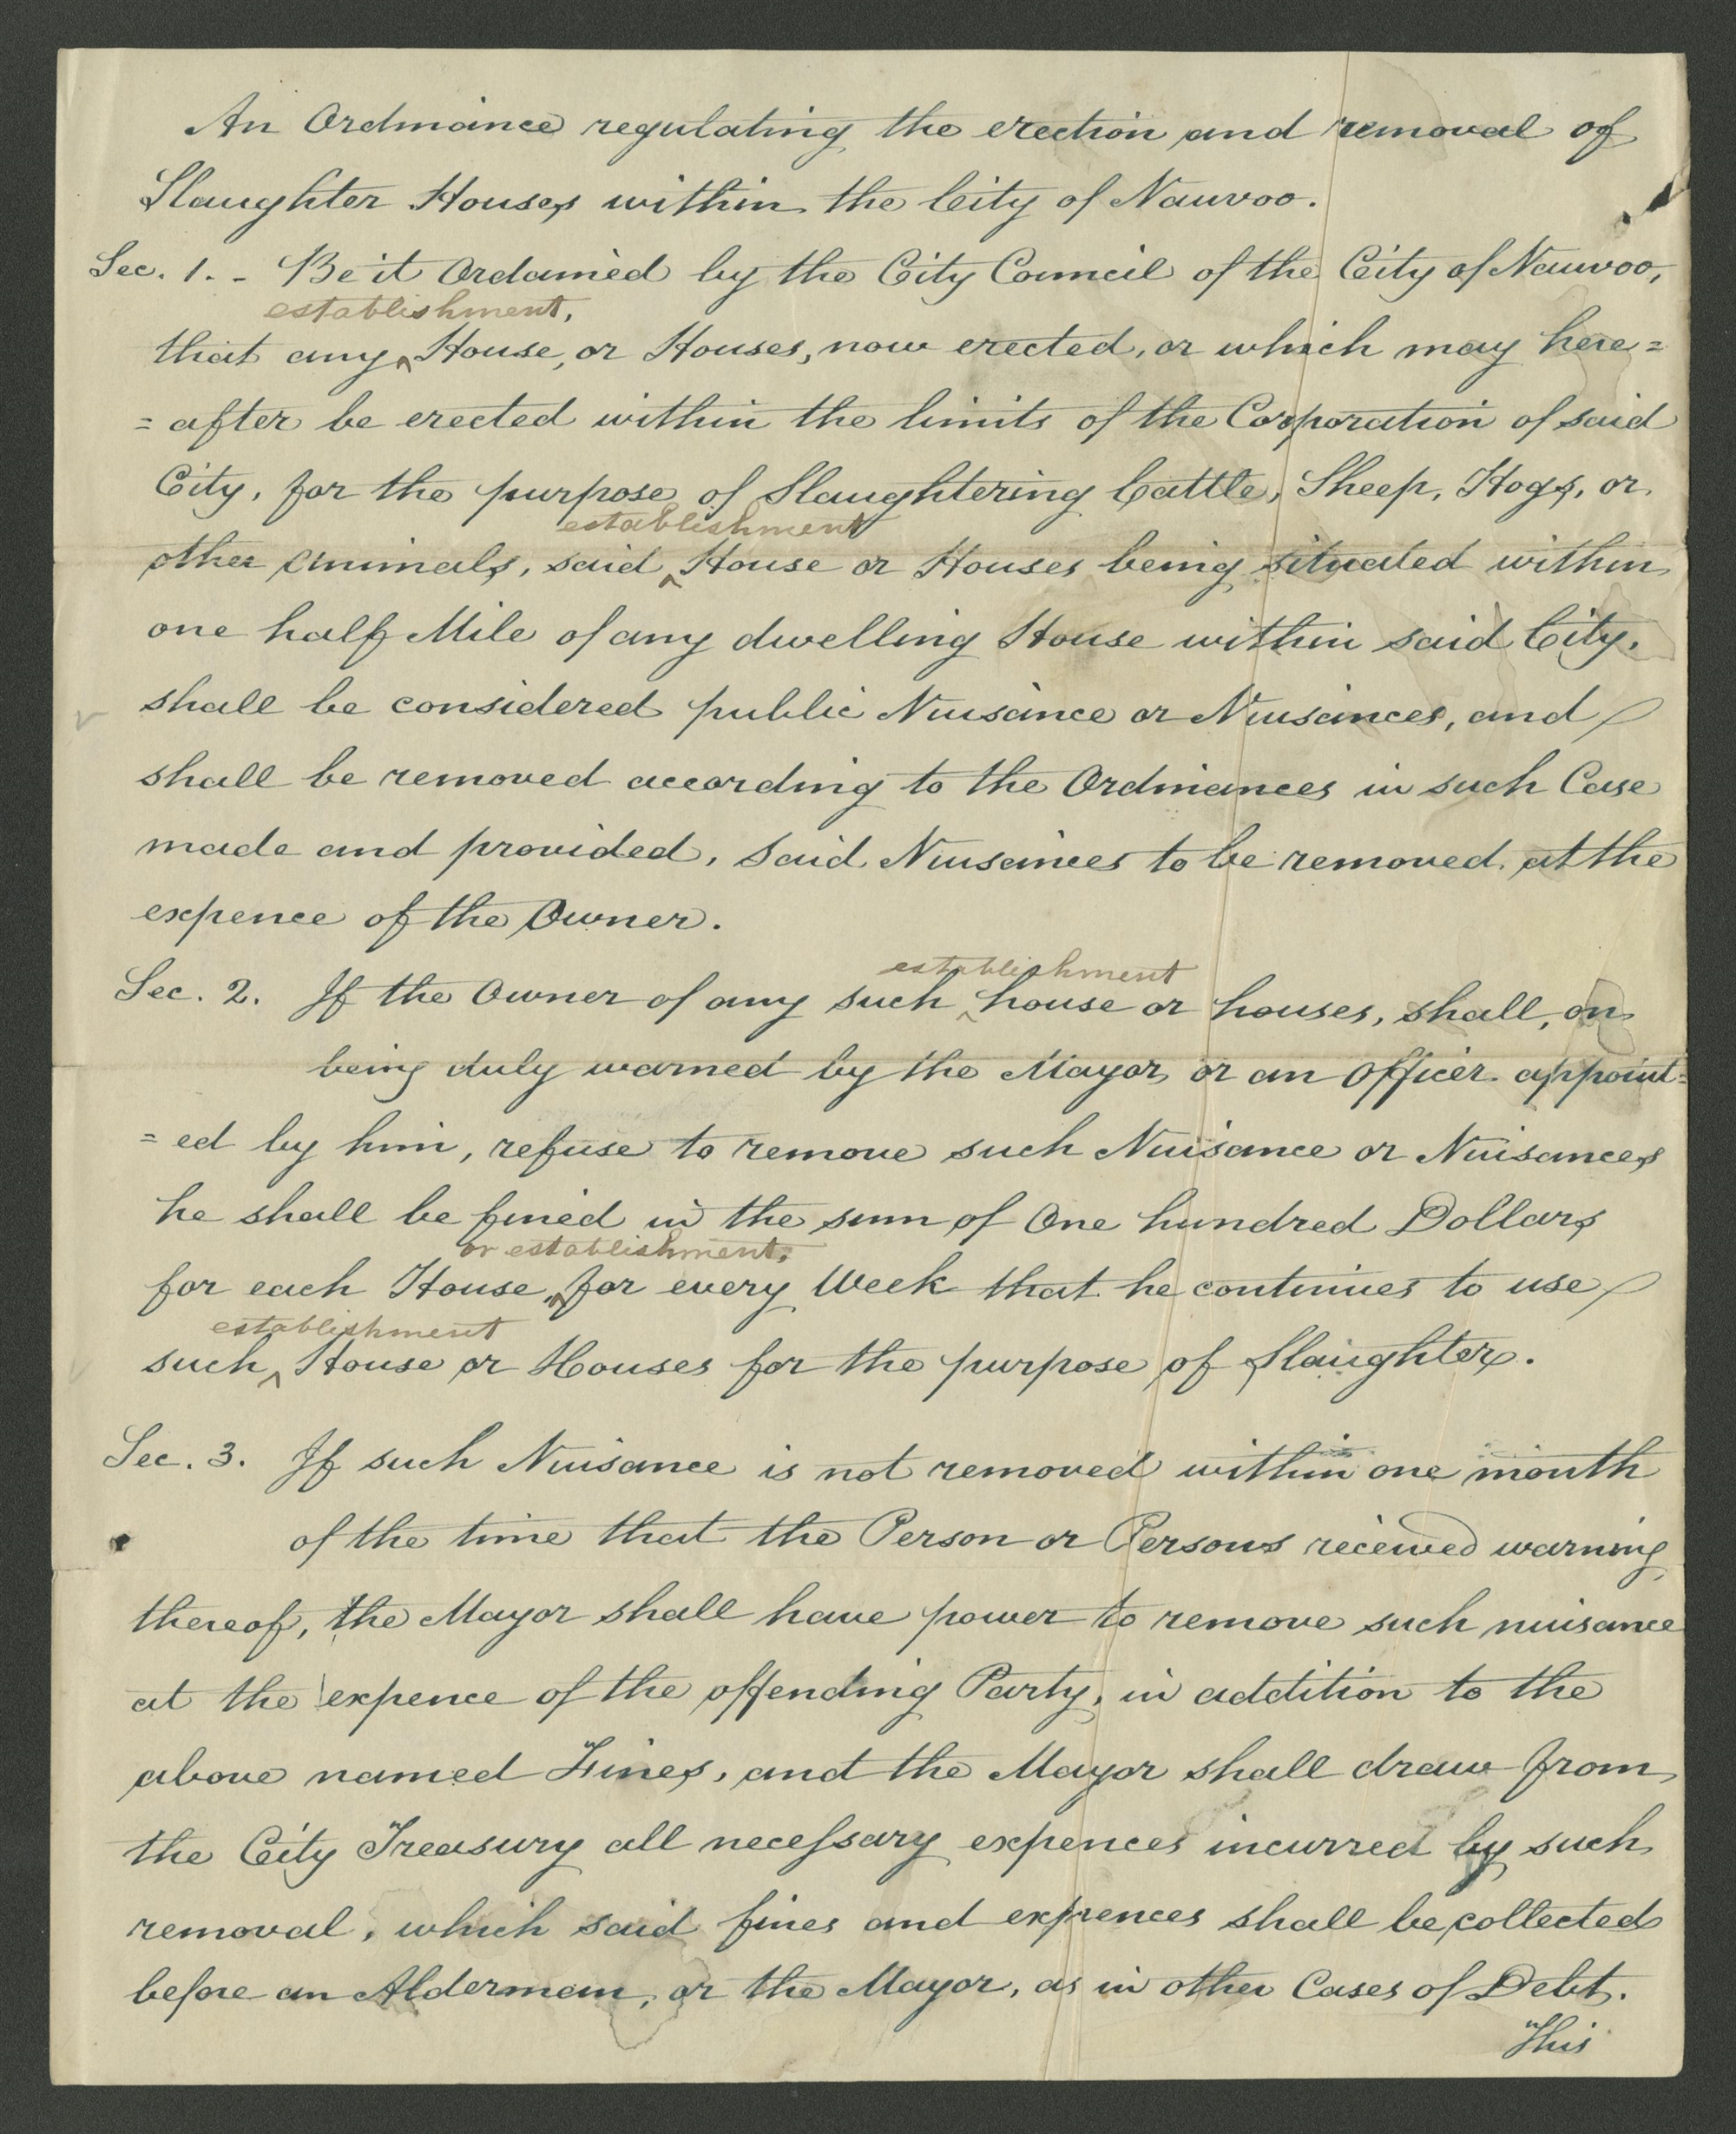 An Ordinance regulating the erection and removal of
Slaughter Houses within the City of Nauvoo.
Sec. 1. - Be it Ordained by the City Council of the City of Nauvoo,
establishment,
that any ^ House, or Houses, now erected, or which may here=
=after be erected within the limits of the Corporation of said
City, for the purpose of Slaughtering Cattle, Sheep, Hogs, or
establishment
other animals, said ^ House or Houses being situated within
one half Mile of any dwelling House within said City,
shall be considered public Nuisance or Nuisances, and
shall be removed according to the Ordinances in such Case
made and provided, said Nuisances to be removed at the
expence of the Owner.
establishment
Sec. 2. If the Owner of any such ^ house or houses, shall, on
being duly warned by the Mayor or an Officer appoint=
=ed by him, refuse to remove such Nuisance or Nuisances
he shall be fined in the sum of One hundred Dollars
or establishment,
for each House, ^ for every Week that he continues to use
establishment
such ^ House or Houses for the purpose of Slaughter.
Sec. 3. If such Nuisance is not removed within one month
of the time that the Person or Persons received warning
thereof, the Mayor shall have power to remove such nuisance
at the expence of the offending Party, in addition to the
above named Fines, and the Mayor shall draw from
the City Treasury all necessary expences incurred by such
removal, which said fines and expences shall be collected
before an Alderman, or the Mayor, as in other Cases of Debt.
This